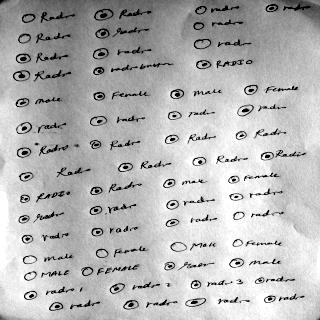 Radio Radio radio radio
Radio Radio radio
Radio radio radio
Radio radiobutton RADIO
male Female male Female
radio radio radio radio
Radio Radio Radio Radio
Radio Radio Radio Radio
RADIO Radio male Female
Radio radio radio radio
radio radio radio radio
male Female Male Female
MALE FEMALE male
radio 1 radio 2 radio 3 radio
radio radio radio radio